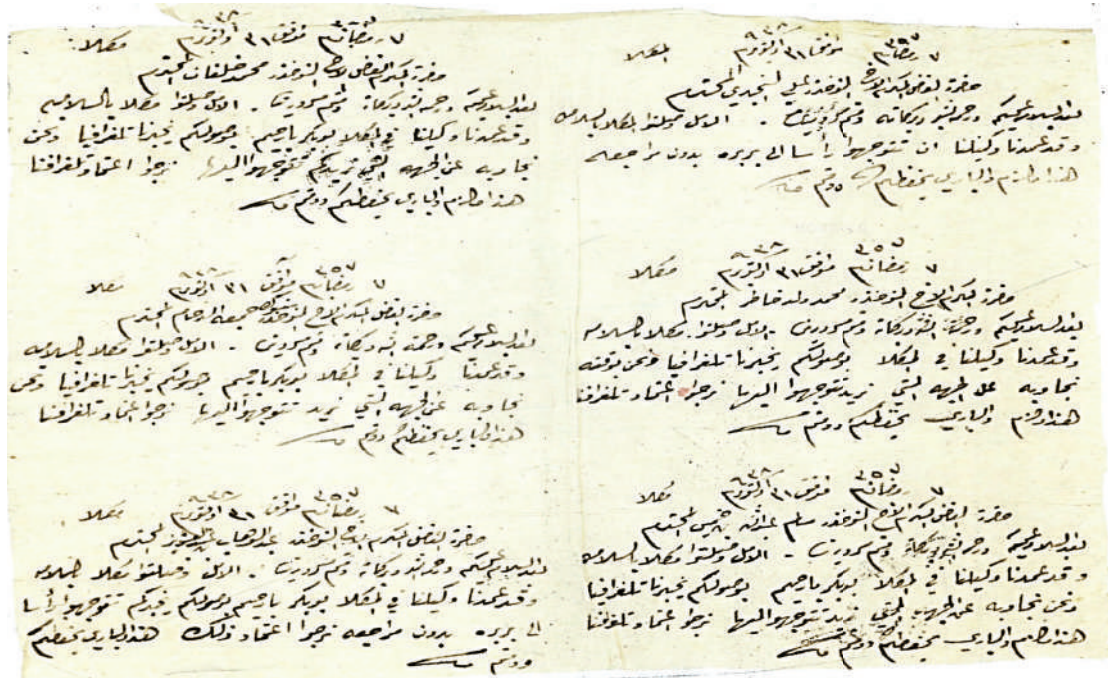 ٧ رمضان ٣٥٧ موافق ٣١ اكتوبر ٩٣٨ المكلا
حضرة الفاضل المكرم الاخ النوخذه المحترم
بعد السلام عليكم ورحمة الله وبركاته ودمتم بسرور. الامل وصلتوا المكلا بالسلامه
وقد عمدنا وكيلنا ان تتوجهوا رأسا الى بربره بدون مراجعه
هذا ما لزم والباري يحفظكم ودمتم
٧ رمضان ٣٥٧ موافق ٣١ اكتوبر ٩٣٨ مكلا
حضرة المكرم الاخ النوخذه محمد ولد خاطر المحترم
بعد السلام عليكم ورحمة الله وبركاته ودمتم بسرور. الامل وصلتوا مكلا بالسلامه
وقد عمدنا وكيلنا في المكلا بوصولكم يخبرنا تلغرافيا ونحن بوقته
نجاوبه عن الجهه التي نريد تتوجهوا اليها نرجوا اعتماد تلغرافنا
هذا ولازم والباري يحفظكم ودمتم
٧ رمضان ٣٥٧ موافق ٣١ اكتوبر ٩٣٨ مكلا
حضرة الفاضل المكرم الاخ النوخذه سالم المحترم
بعد السلام عليكم ورحمة الله وبركاته ودمتم بسرور. الامل وصلتوا مكلا بالسلامه
وقد عمدنا وكيلنا في المكلا بوبكر بارحيم بوصولكم يخبرنا تلغرافيا
ونحن نجاوبه عن الجهه التي نريد تتوجهوا اليها نرجوا اعتماد تلغرافنا
هذا ما لزم والباري يحفظكم ودمتم
٧ رمضان ٣٥٧ موافق ٣١ اكتوبر ٩٣٨ مكلا
حضرة المكرم الفاضل الاخ النوخذه محمد خلفان المحترم
بعد السلام عليكم ورحمة الله وبركاته ودمتم بسرور. الامل وصلتوا مكلا بالسلامه
وقد عمدنا وكيلنا في المكلا بوبكر بارحيم بوصولكم يخبرنا تلغرافيا ونحن
نجاوبه عن الجهه التي نريدكم تتوجهوا اليها نرجوا اعتماد تلغرافنا
هذا ما لزم والباري يحفظكم ودمتم
٧ رمضان ٣٥٧ موافق ٣١ اكتوبر ٩٣٨ مكلا
حضرة الفاضل المكرم الاخ النوخذه جمعه المحترم
بعد السلام عليكم ورحمة الله وبركاته ودمتم بسرور. الامل وصلتوا مكلا بالسلامه
وقد عمدنا وكيلنا في المكلا بوبكر بارحيم بوصولكم يخبرنا تلغرافيا ونحن
نجاوبه عن الجهه التي نريد تتوجهوا اليها نرجوا اعتماد تلغرافنا
هذا والباري يحفظكم ودمتم
٧ رمضان ٣٥٧ موافق ٣١ اكتوبر ٩٣٨ مكلا
حضرة الفاضل المكرم الاخ النوخذه عبد الوهاب عبد العزيز المحترم
بعد السلام عليكم ورحمة الله وبركاته ودمتم بسرور. الامل وصلتوا مكلا بالسلامه
وقد عمدنا وكيلنا في المكلا بوبكر بارحيم بوصولكم يخبركم تتوجهوا رأسا
الى بربره بدون مراجعه نرجوا اعتماد ذلك هذا والباري يحفظكم
ودمتم